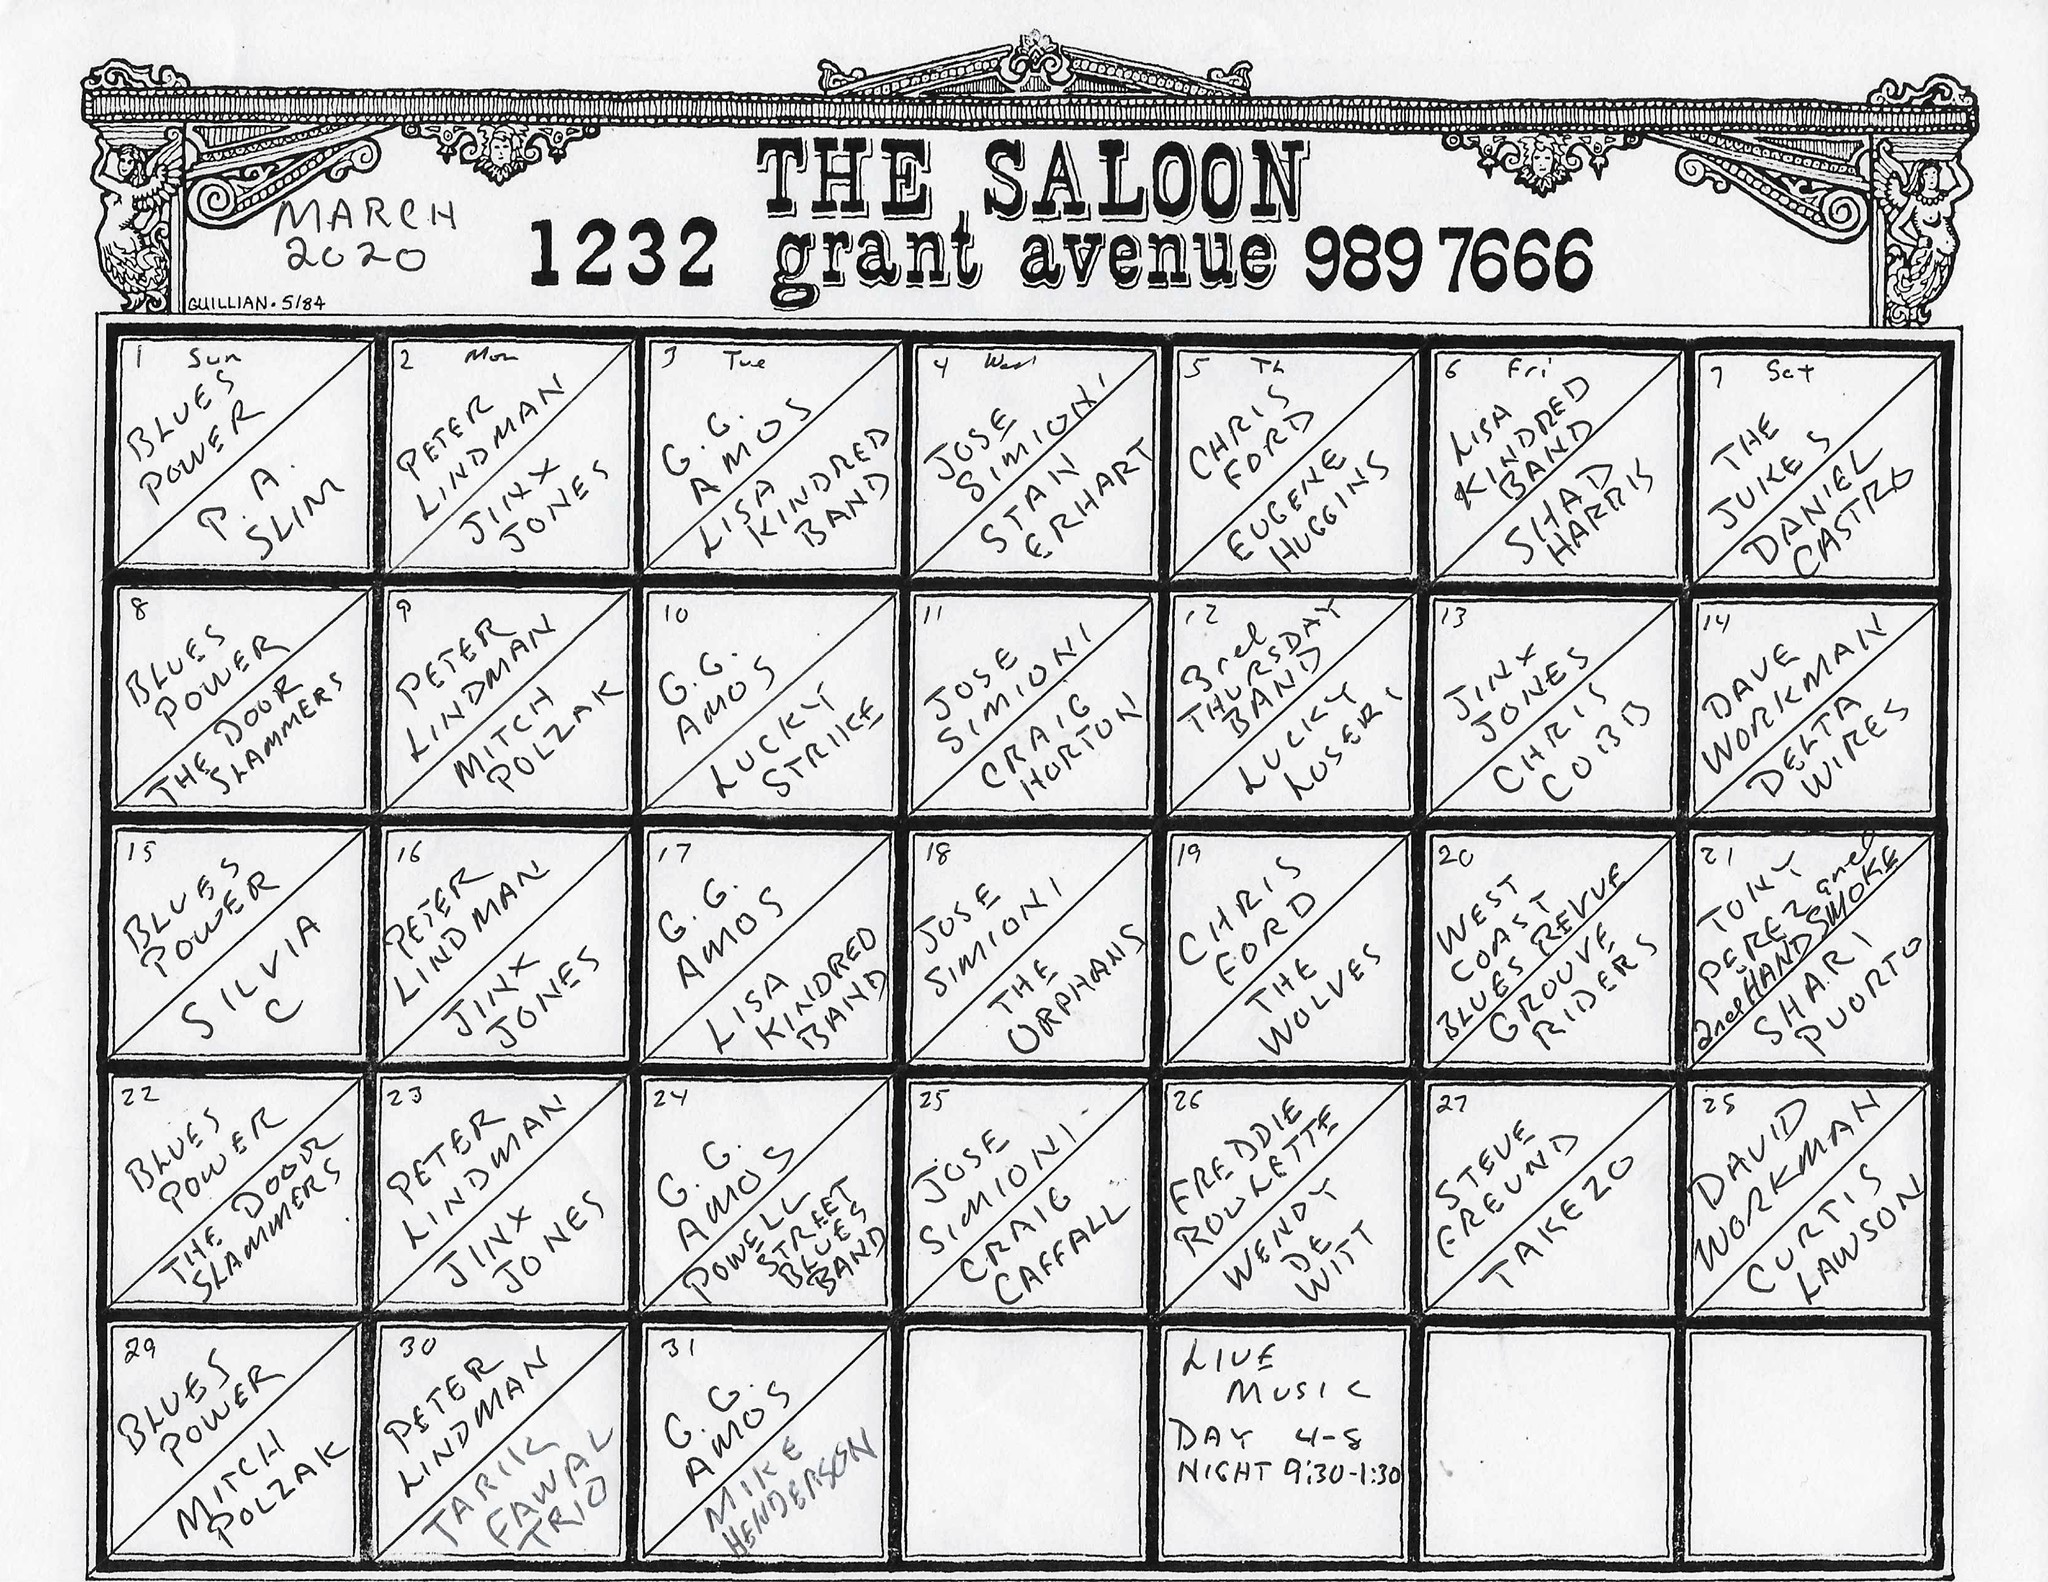 THE SALOON
1232 grant avenue 989 7666
MARCH
2020
GUILLIAN · 5/84
1 Sun
BLUES
POWER
P. A.
SLIM
2 Mon
PETER
LINDMAN
JINX
JONES
3 Tue
G. G.
AMOS
LISA
KINDRED
BAND
4 Wed
JOSE
SIMIONI
STAN
ERHART
5 Th
CHRIS
FORD
EUGENE
HUGGINS
6 Fri
LISA
KINDRED
BAND
SHAD
HARRIS
7 Sat
THE
JUKES
DANIEL
CASTRO
8
BLUES
POWER
THE DOOR
SLAMMERS
9
PETER
LINDMAN
MITCH
POLZAK
10
G.G.
AMOS
LUCKY
STRIKE
11
JOSE
SIMIONI
CRAIG
HORTON
12
3rd
THURSDAY
BAND
LUCKY
LOSERS
13
JINX
JONES
CHRIS
COBB
14
DAVE
WORKMAN
DELTA
WIRES
15
BLUES
POWER
SILVIA
C
16
PETER
LINDMAN
JINX
JONES
17
G. G.
AMOS
LISA
KINDRED
BAND
18
JOSE
SIMIONI
THE
ORPHANS
19
CHRIS
FORD
THE
WOLVES
20
WEST
COAST
BLUES REVUE
GROOVE
RIDERS
21
TONY
PEREZ and
2nd HAND SMOKE
SHARI
PUORTO
22
BLUES
POWER
THE DOOR
SLAMMERS
23
PETER
LINDMAN
JINX
JONES
24
G. G.
AMOS
POWELL
STREET
BLUES
BAND
25
JOSE
SIMIONI
CRAIG
CAFFALL
26
FREDDIE
ROULETTE
WENDY
DE
WITT
27
STEVE
FREUND
TAKEZO
28
DAVID
WORKMAN
CURTIS
LAWSON
29
BLUES
POWER
MITCH
POLZAK
30
PETER
LINDMAN
TARIK
FAWAL
TRIO
31
G. G.
AMOS
MIKE
HENDERSON
LIVE
MUSIC
DAY 4-8
NIGHT 9:30-1:30